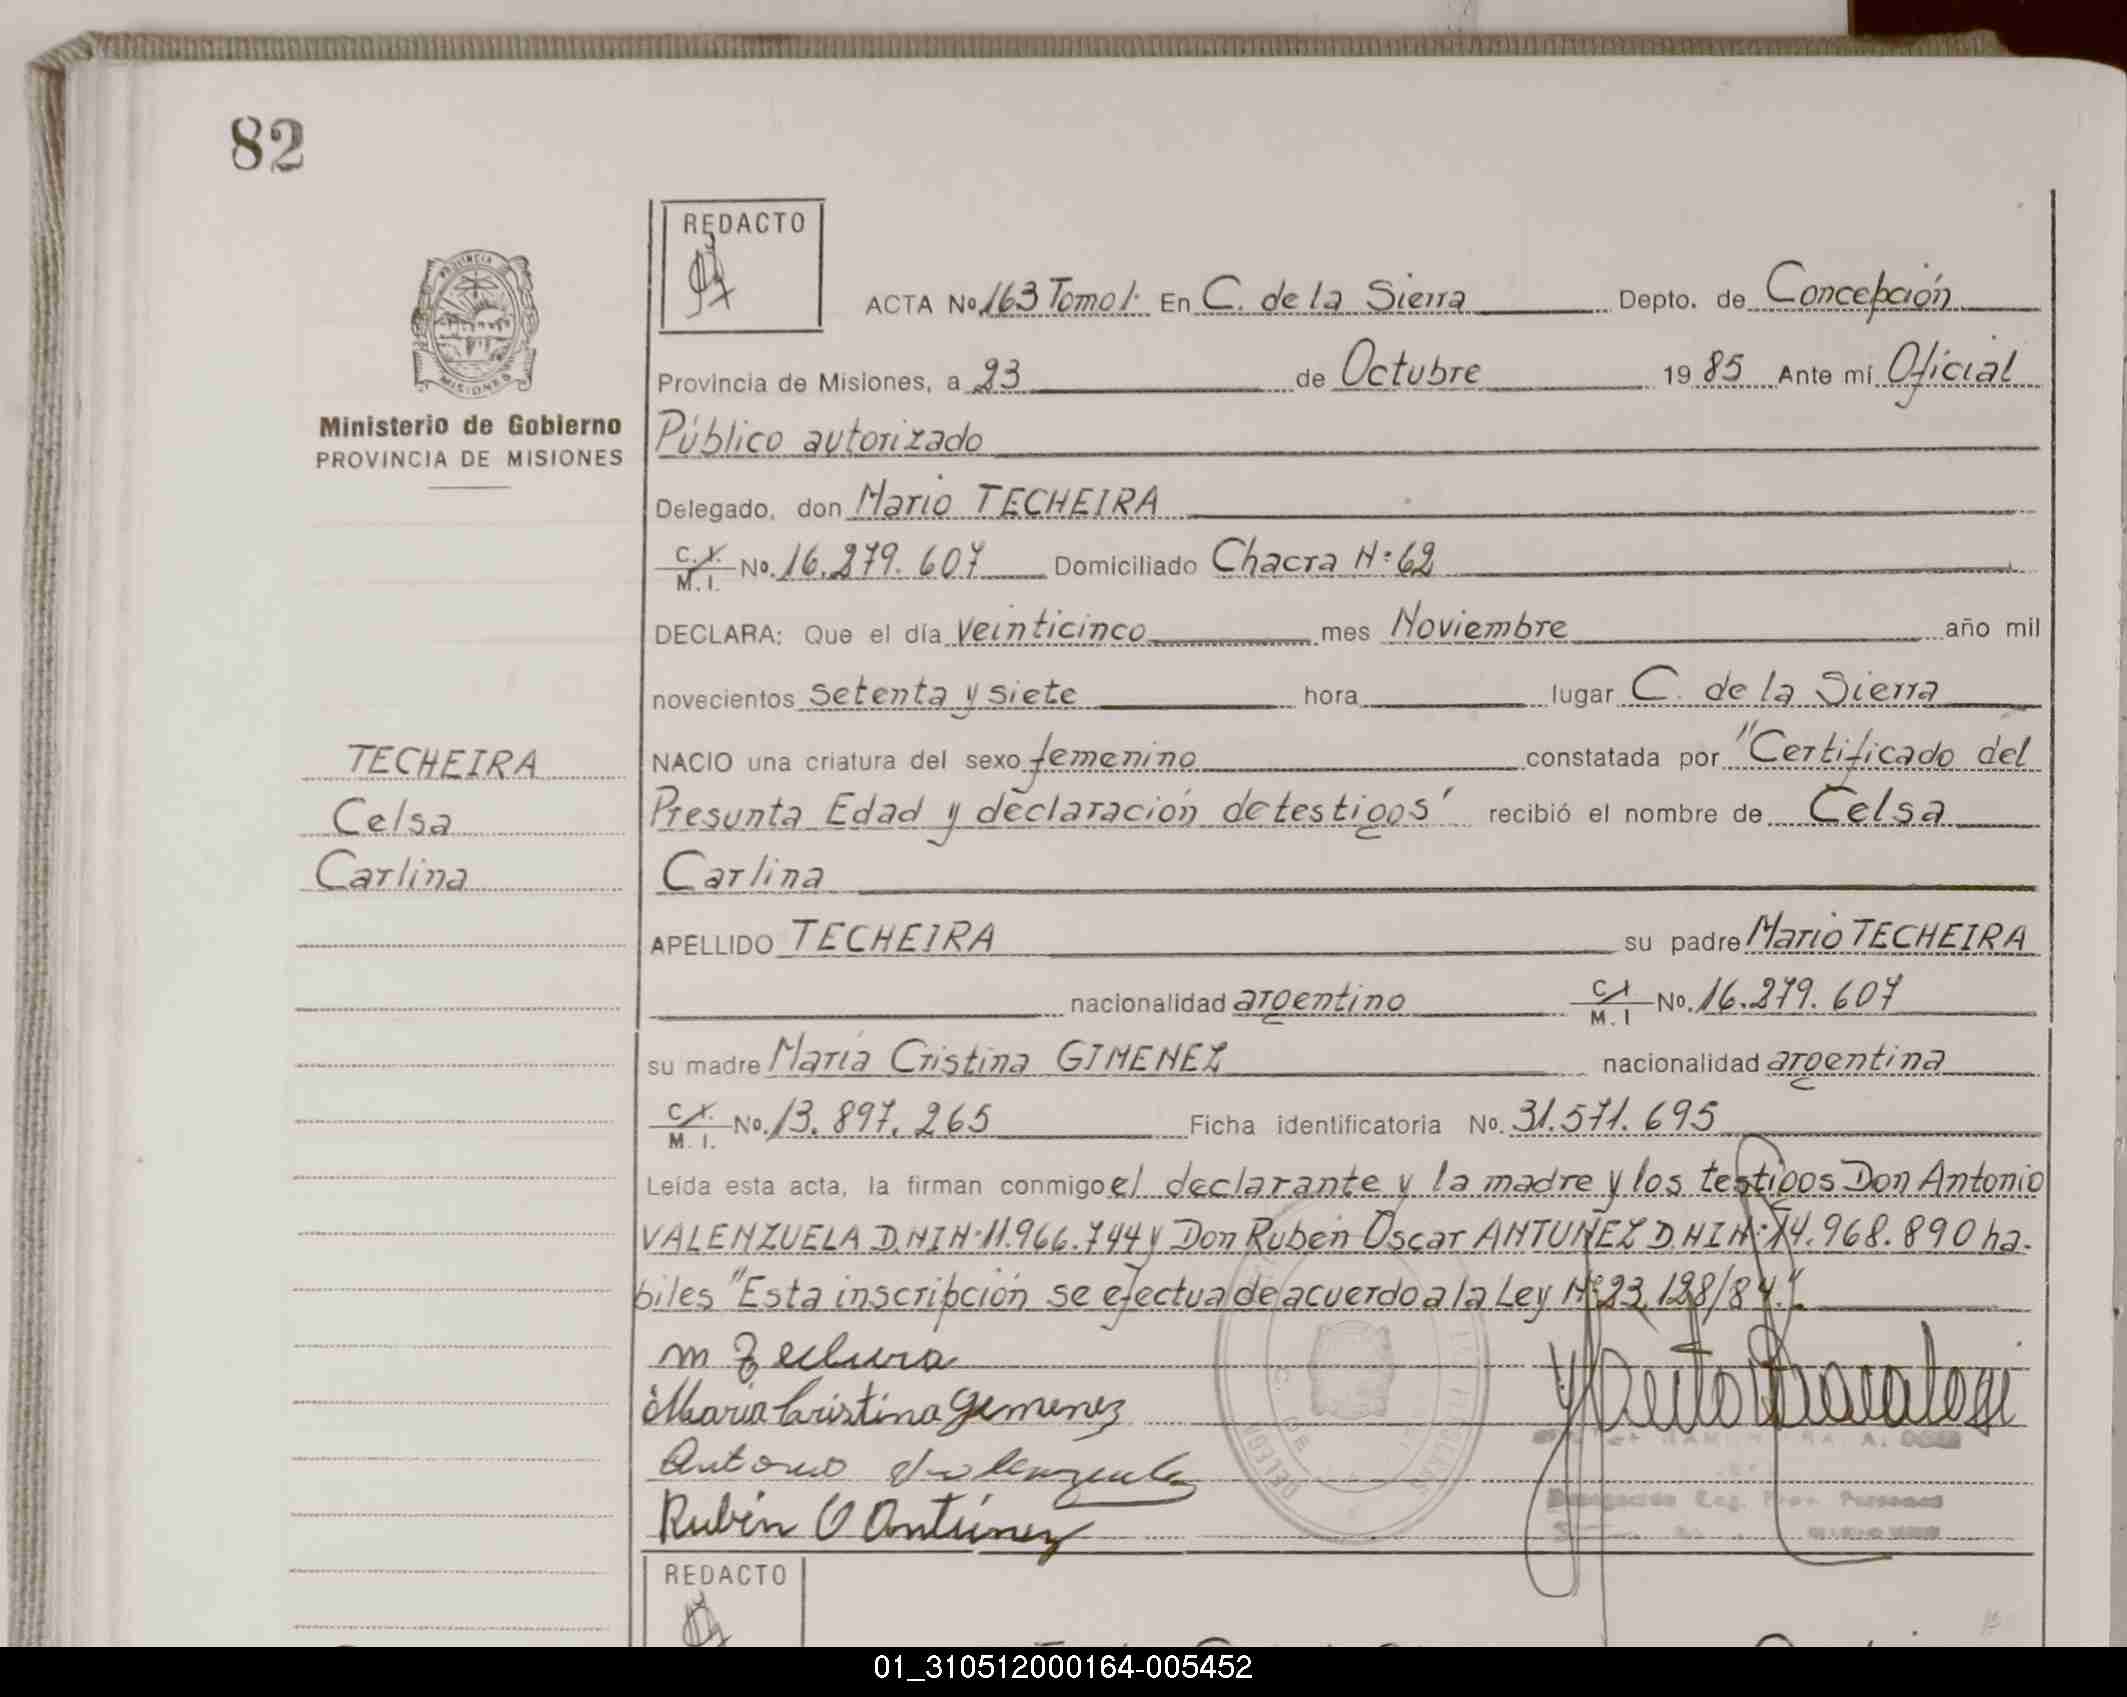 82
REDACTO
PROVINCIA DE
MISIONES
ACTA No. 163 Tomo 1. En C. de la Sierra Depto. de Concepción
Provincia de Misiones, a 23 de Octubre 1985 Ante mí Oficial
Ministerio de Gobierno
PROVINCIA DE MISIONES
Público autorizado
Delegado, don Mario TECHEIRA
C. I. / M. I. No. 16.279.607 Domiciliado Chacra N: 62
DECLARA: Que el día veinticinco mes Noviembre año mil
novecientos setenta y siete hora lugar C. de la Sierra
TECHEIRA
Celsa
Carlina
NACIO una criatura del sexo femenino constatada por "Certificado del
Presunta Edad y declaración de testigos" recibió el nombre de Celsa
Carlina
APELLIDO TECHEIRA su padre Mario TECHEIRA
nacionalidad argentino C I / M. I No. 16.279.607
su madre María Cristina GIMENEZ nacionalidad argentina
C. I. / M. I. No. 13.897.265 Ficha identificatoria No. 31.571.695
Leída esta acta, la firman conmigo el declarante y la madre y los testigos Don Antonio
VALENZUELA D.N.I N: 11.966.744 y Don Rubén Oscar ANTUNEZ D.N.I N: 14.968.890 ha-
biles "Esta inscripción se efectua de acuerdo a la Ley N: 23.128/84."
m Techeira
Maria Cristina Gimenez
Antonio Valenzuela
Rubén O Antúnez
REDACTO
01_310512000164-005452